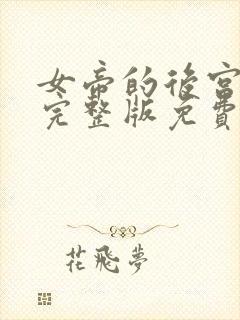 女帝的後宮
完整版免費
花飛夢